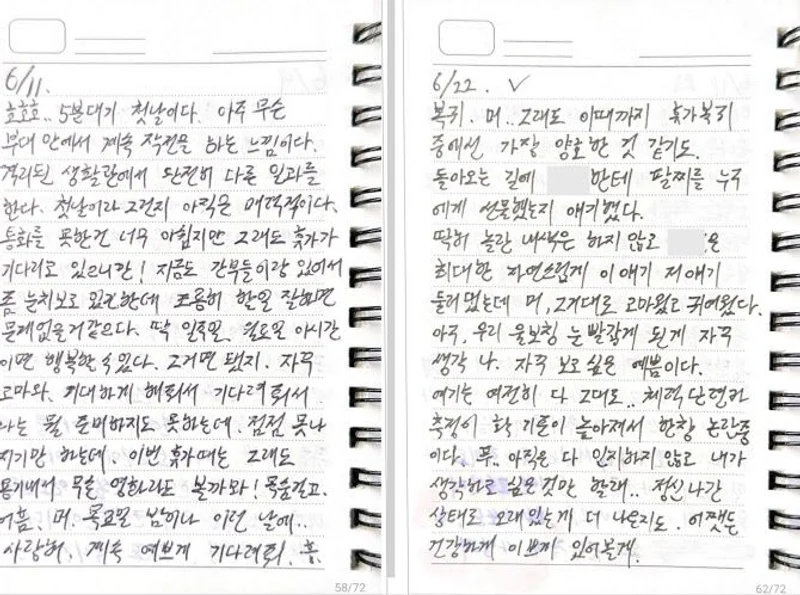 6/11.
흐흐흐.. 5분대기 첫날이다. 아주 무슨
부대 안에서 계속 작전을 하는 느낌이다.
격리된 생활관에서 완전히 다른 일과를
한다. 첫날이라 그런지 아직은 매력적이다.
통화를 못한건 너무 아쉽지만 그래도 휴가가
기다리고 있으니깐! 지금도 간부들이랑 있어서
좀 눈치보고 있긴한데 조용히 할일 잘하면
문제없을거같으다. 딱 일주일. 월요일 이시간
이면 행복할 수 있다. 그거면 됐지. 자꾸
고마워. 기대하게 해줘서 기다려줘서.
나는 뭘 준비하지도 못하는데. 점점 못나
지기만 하는데. 이번 휴가때는 그래도
용기내서 무슨 영화라도 볼까와! 목숨걸고.
어흠. 머. 목요일 밤이나 이런 날에..
사랑해, 계속 예쁘게 기다려줘. 흠.
58/72
6/22. ✓
복귀. 머.. 그래도 이때까지 휴가복귀
중에선 가장 양호한 것 같기도.
돌아오는 길에 한테 팔찌를 누구
에게 선물했는지 얘기했다.
딱히 놀란 내색은 하지 않고 은
최대한 자연스럽게 이 얘기 저 얘기
둘러 댔는데 머, 그거대로 고마웠고 귀여웠다.
아주, 우리 울보칭 눈 빨갛게 된게 자꾸
생각 나. 자꾸 보고싶은 예쁨이다.
여기는 여전히 다 그대로.. 체력단련과
측정이 확 기준이 높아져서 한창 논란중
이다. 푸.. 아직은 다 인지하지 않고 내가
생각하고 싶은 것만 할래.. 정신 나간
상태로 오래있는게 더 나은지도. 어쨌든
건강하게 이쁘게 있어볼게.
62/72